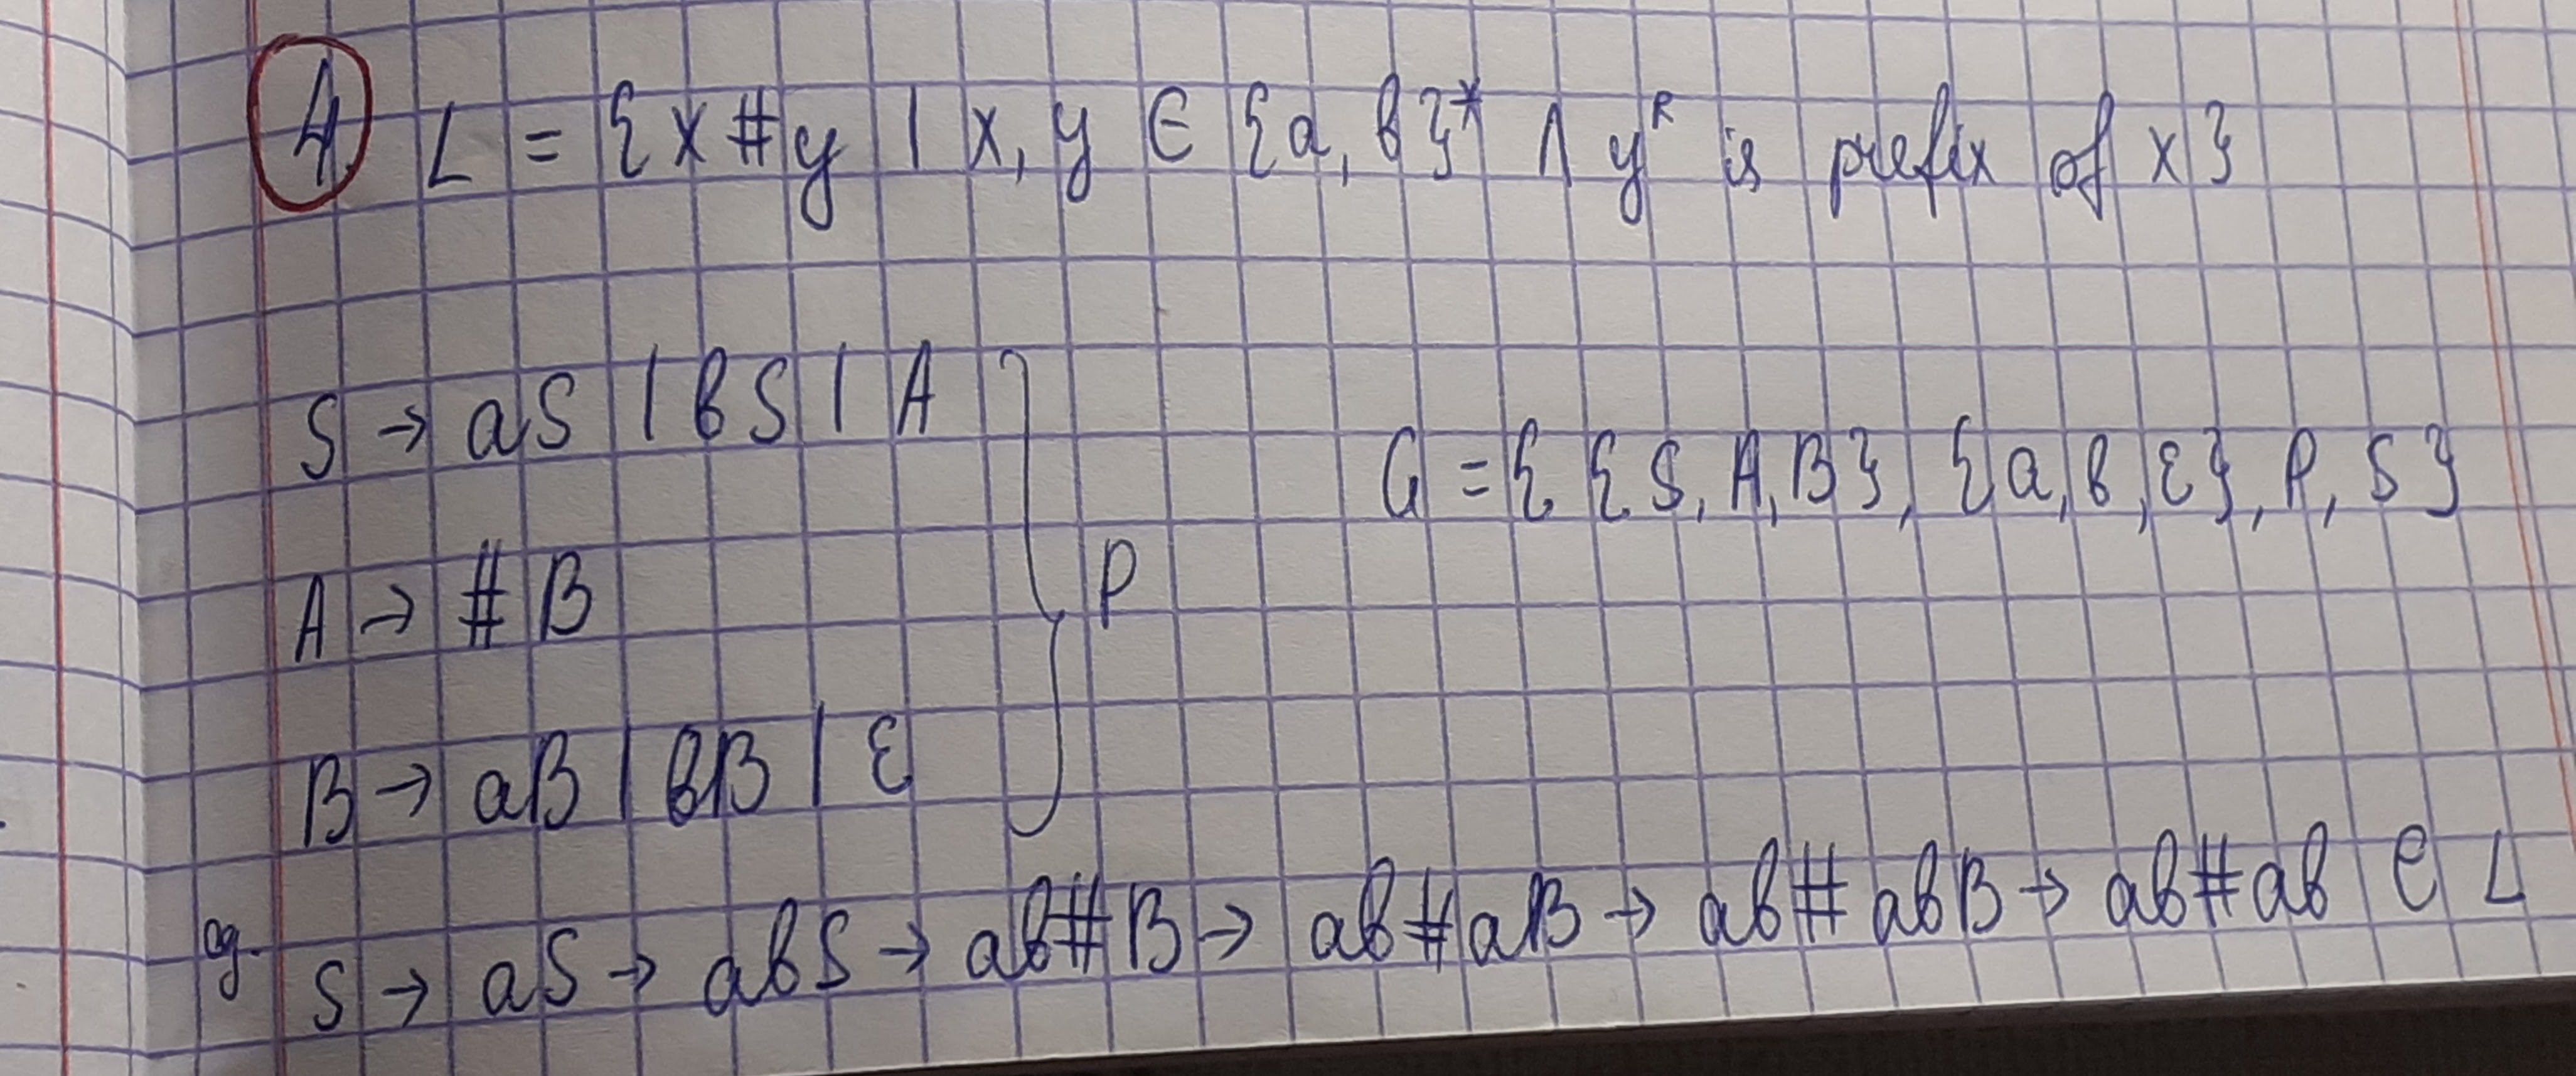 4. L = {x#y | x, y ∈ {a, b}* ∧ yᴿ is prefix of x}
S → aS | bS | A
G = {{S, A, B}, {a, b, ε}, P, S}
A → #B
P
B → aB | bB | ε
eg. S → aS → abS → ab#B → ab#aB → ab#abB → ab#ab ∈ L